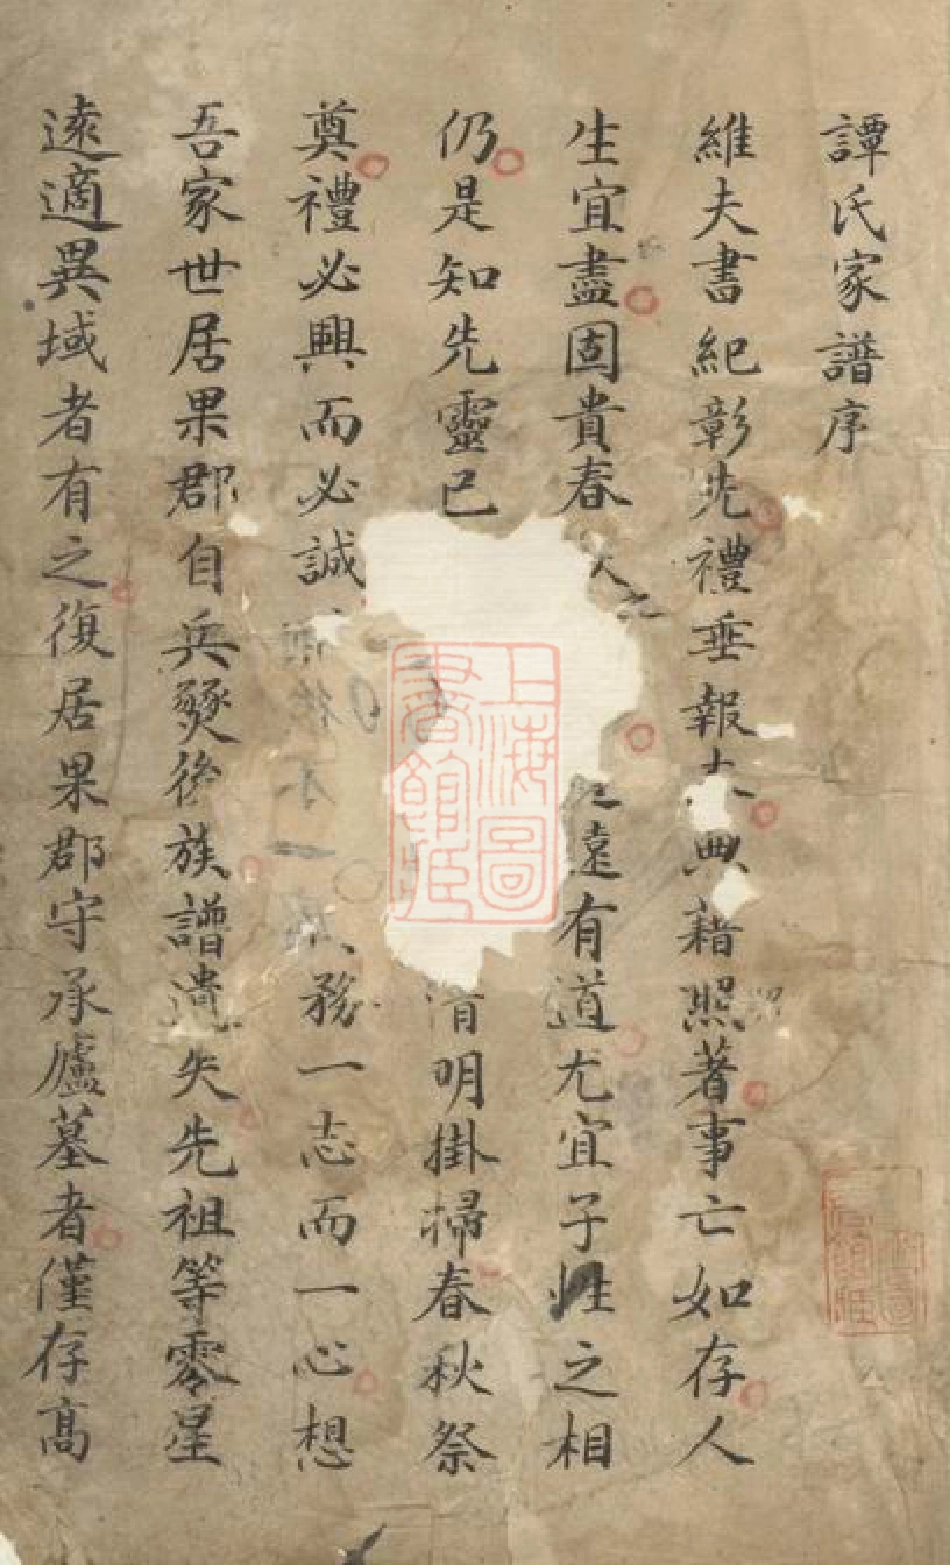 譚氏家譜序
維夫書紀彰先禮垂報典藉照著事亡如存人
生宜盡固貴春遠有道尤宜子姓之相
仍是知先靈已清明掛掃春秋祭
奠禮必興而必誠務一志而一心想
吾家世居果郡自兵燹後族譜遺失先祖等零星
遠適異域者有之復居果郡守承廬墓者僅存高
上海圖
書館藏